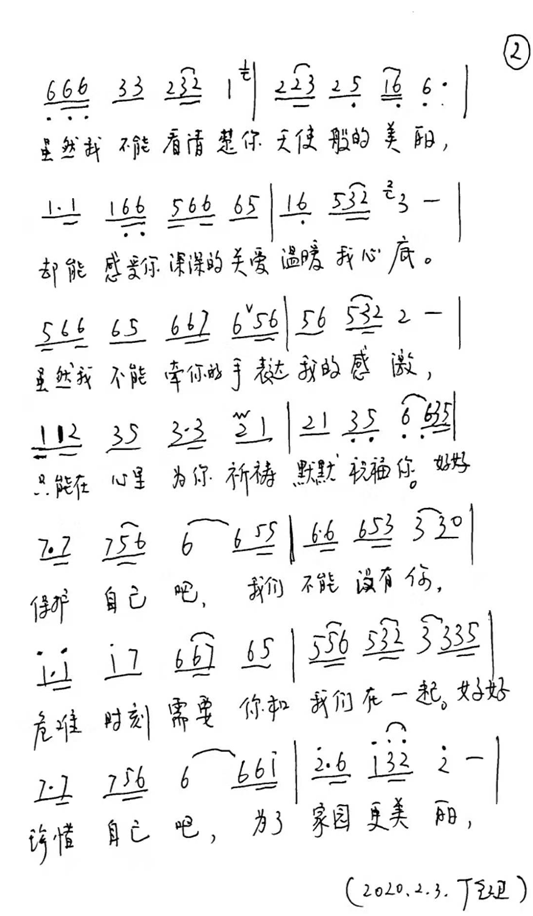 ②
666 33 232 1 | 223 25 16 6· |
虽然我 不能 看清楚你 天使般的美丽,
1·1 166 566 65 | 16 532 3 — |
却能 感受你 深深的关爱 温暖我心底。
566 65 667 6ˇ56 | 56 532 2 — |
虽然我 不能 牵你的手 表达我的感激,
112 35 3·3 21 | 21 35 6 635 |
只能在 心里 为你 祈祷 默默祝福你。好好
7·7 756 6 655 | 6·6 653 3 30 |
保护 自己 吧, 我们 不能 没有 你,
i·i i7 667 65 | 556 532 3 335 |
危难 时刻 需要 你和 我们在一起。好好
7·7 756 6 66i | 2·6 i32 2 — |
珍惜 自己 吧, 为了 家园更美丽,
(2020.2.3.丁